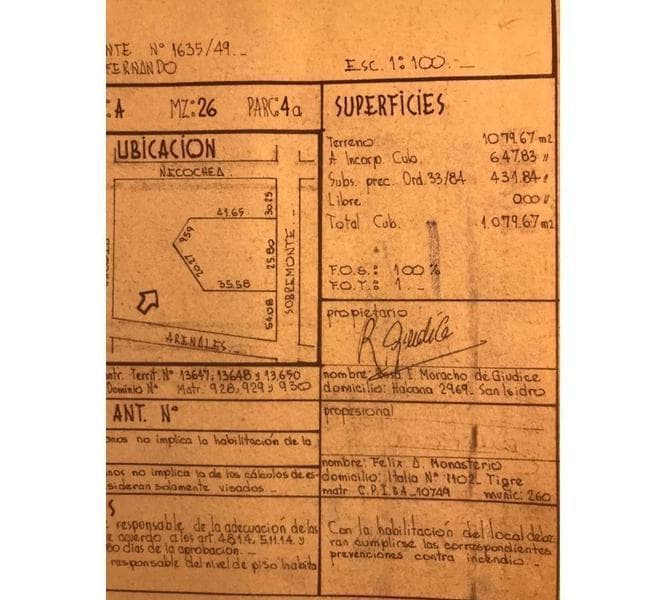 NTE Nº 1635/49._
FERNANDO
ESC. 1:100._
:A MZ:26 PARC:4a
UBICACION
NECOCHEA
41.65
30.25
9.59
20.27
25.80
35.58
54.08
SOBREMONTE._
ARENALES._
ntr. Territ. Nº 13647, 13648 y 13,650
Dominio Nº Matr. 928, 929 y 930
ANT. Nº
nos no implica la habilitación de la
nos no implica la de los cálculos de es-
sideran solamente visados._
S
responsable de la adecuación de las
acuerdo a los art. 4.8.1.4, 5.11.1.4. y
60 días de la aprobación._
responsable del nivel de piso habita
SUPERFICIES
Terreno 1079.67 m2
A Incorp. Cub. 647.83 "
Subs. prec. Ord. 33/84 431.84 "
Libre 0.00 "
Total Cub. 1.079.67 m2
F.O.S.: 100 %
F.O.T.: 1._
propietario
R. Giudice
nombre: I. Moracho de Giudice
domicilio: Habana 2969- San Isidro
profesional
nombre: Felix D. Monasterio
domicilio: Italia Nº 1102- Tigre
matr. C.P.I.BA 10749 munic: 260
Con la habilitación del local debe
ran cumplirse las correspondientes
prevenciones contra incendio._